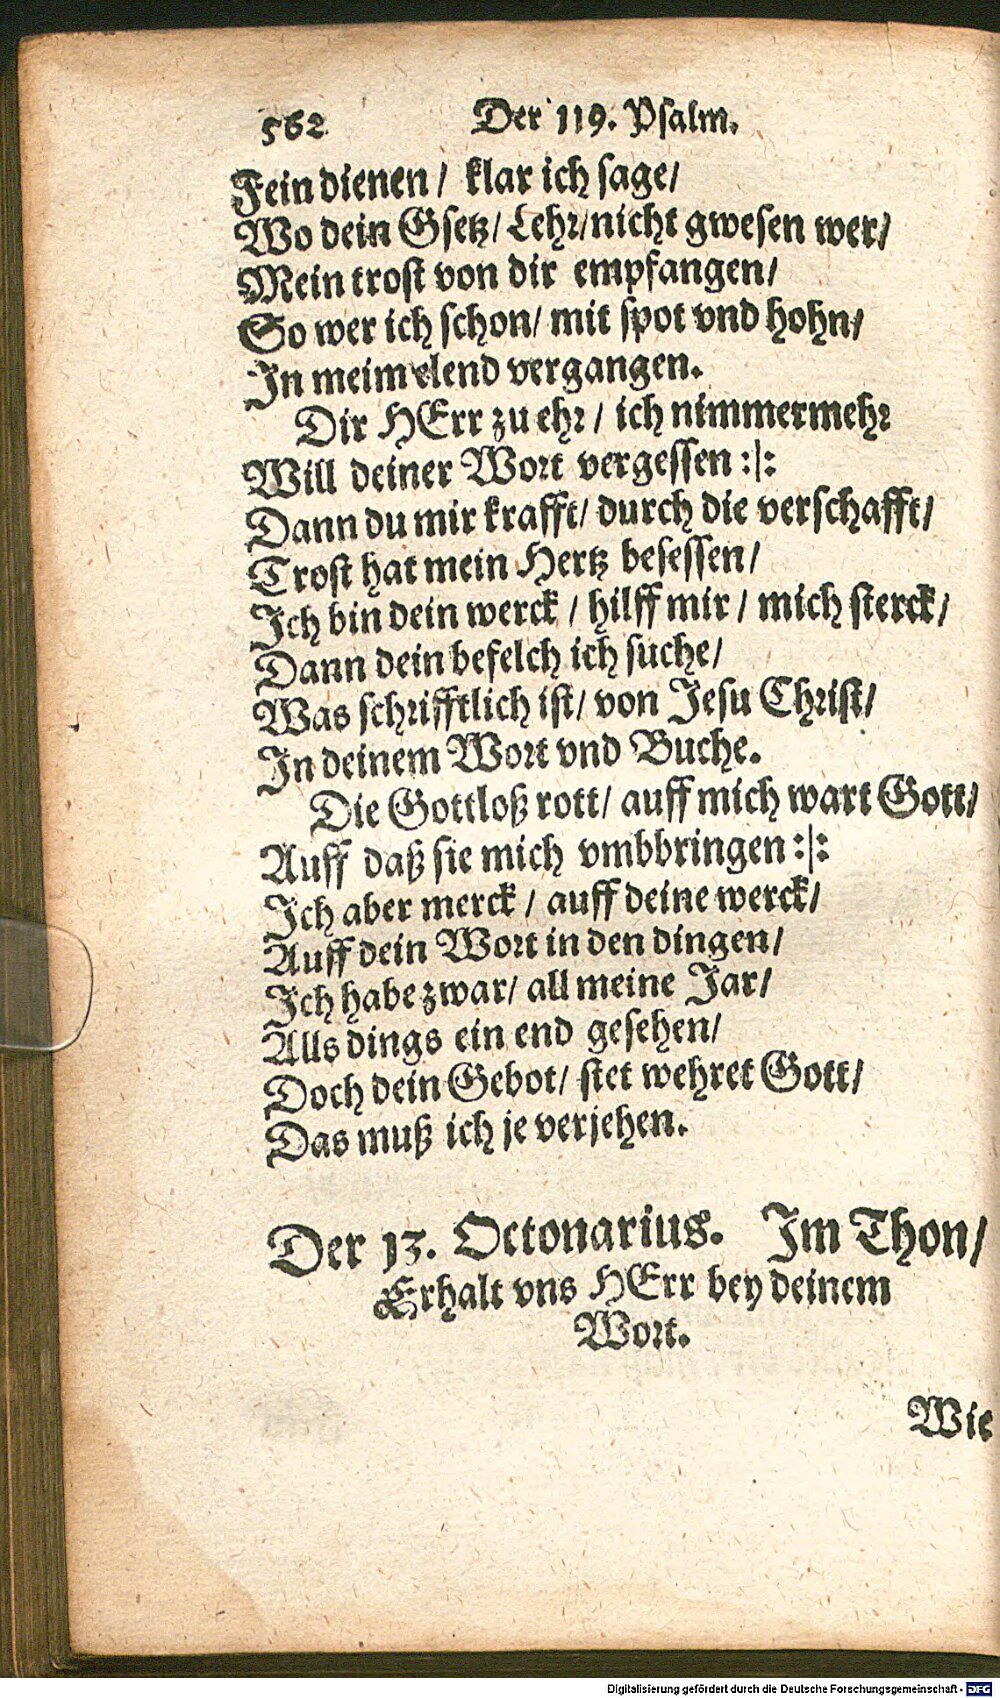 562 Der 119. Psalm.
Fein dienen / klar ich sage/
Wo dein Gsetz/ Lehr/ nicht gwesen wer/
Mein trost von dir empfangen/
So wer ich schon/ mit spot vnd hohn/
In meim elend vergangen.
Dir HErr zu ehr / ich nimmermehr
Will deiner Wort vergessen :|:
Dann du mir krafft/ durch die verschafft/
Trost hat mein Hertz besessen/
Ich bin dein werck / hilff mir / mich sterck/
Dann dein befelch ich suche/
Was schrifftlich ist/ von Jesu Christ/
In deinem Wort vnd Buche.
Die Gottloß rott/ auff mich wart Gott/
Auff daß sie mich vmbbringen :|:
Ich aber merck / auff deine werck/
Auff dein Wort in den dingen/
Ich habe zwar/ all meine Jar/
Alls dings ein end gesehen/
Doch dein Gebot/ stet wehret Gott/
Das muß ich je verjehen.
Der 13. Octonarius. Im Thon/
Erhalt vns HErr bey deinem
Wort.
Wie
Digitalisierung gefördert durch die Deutsche Forschungsgemeinschaft - DFG